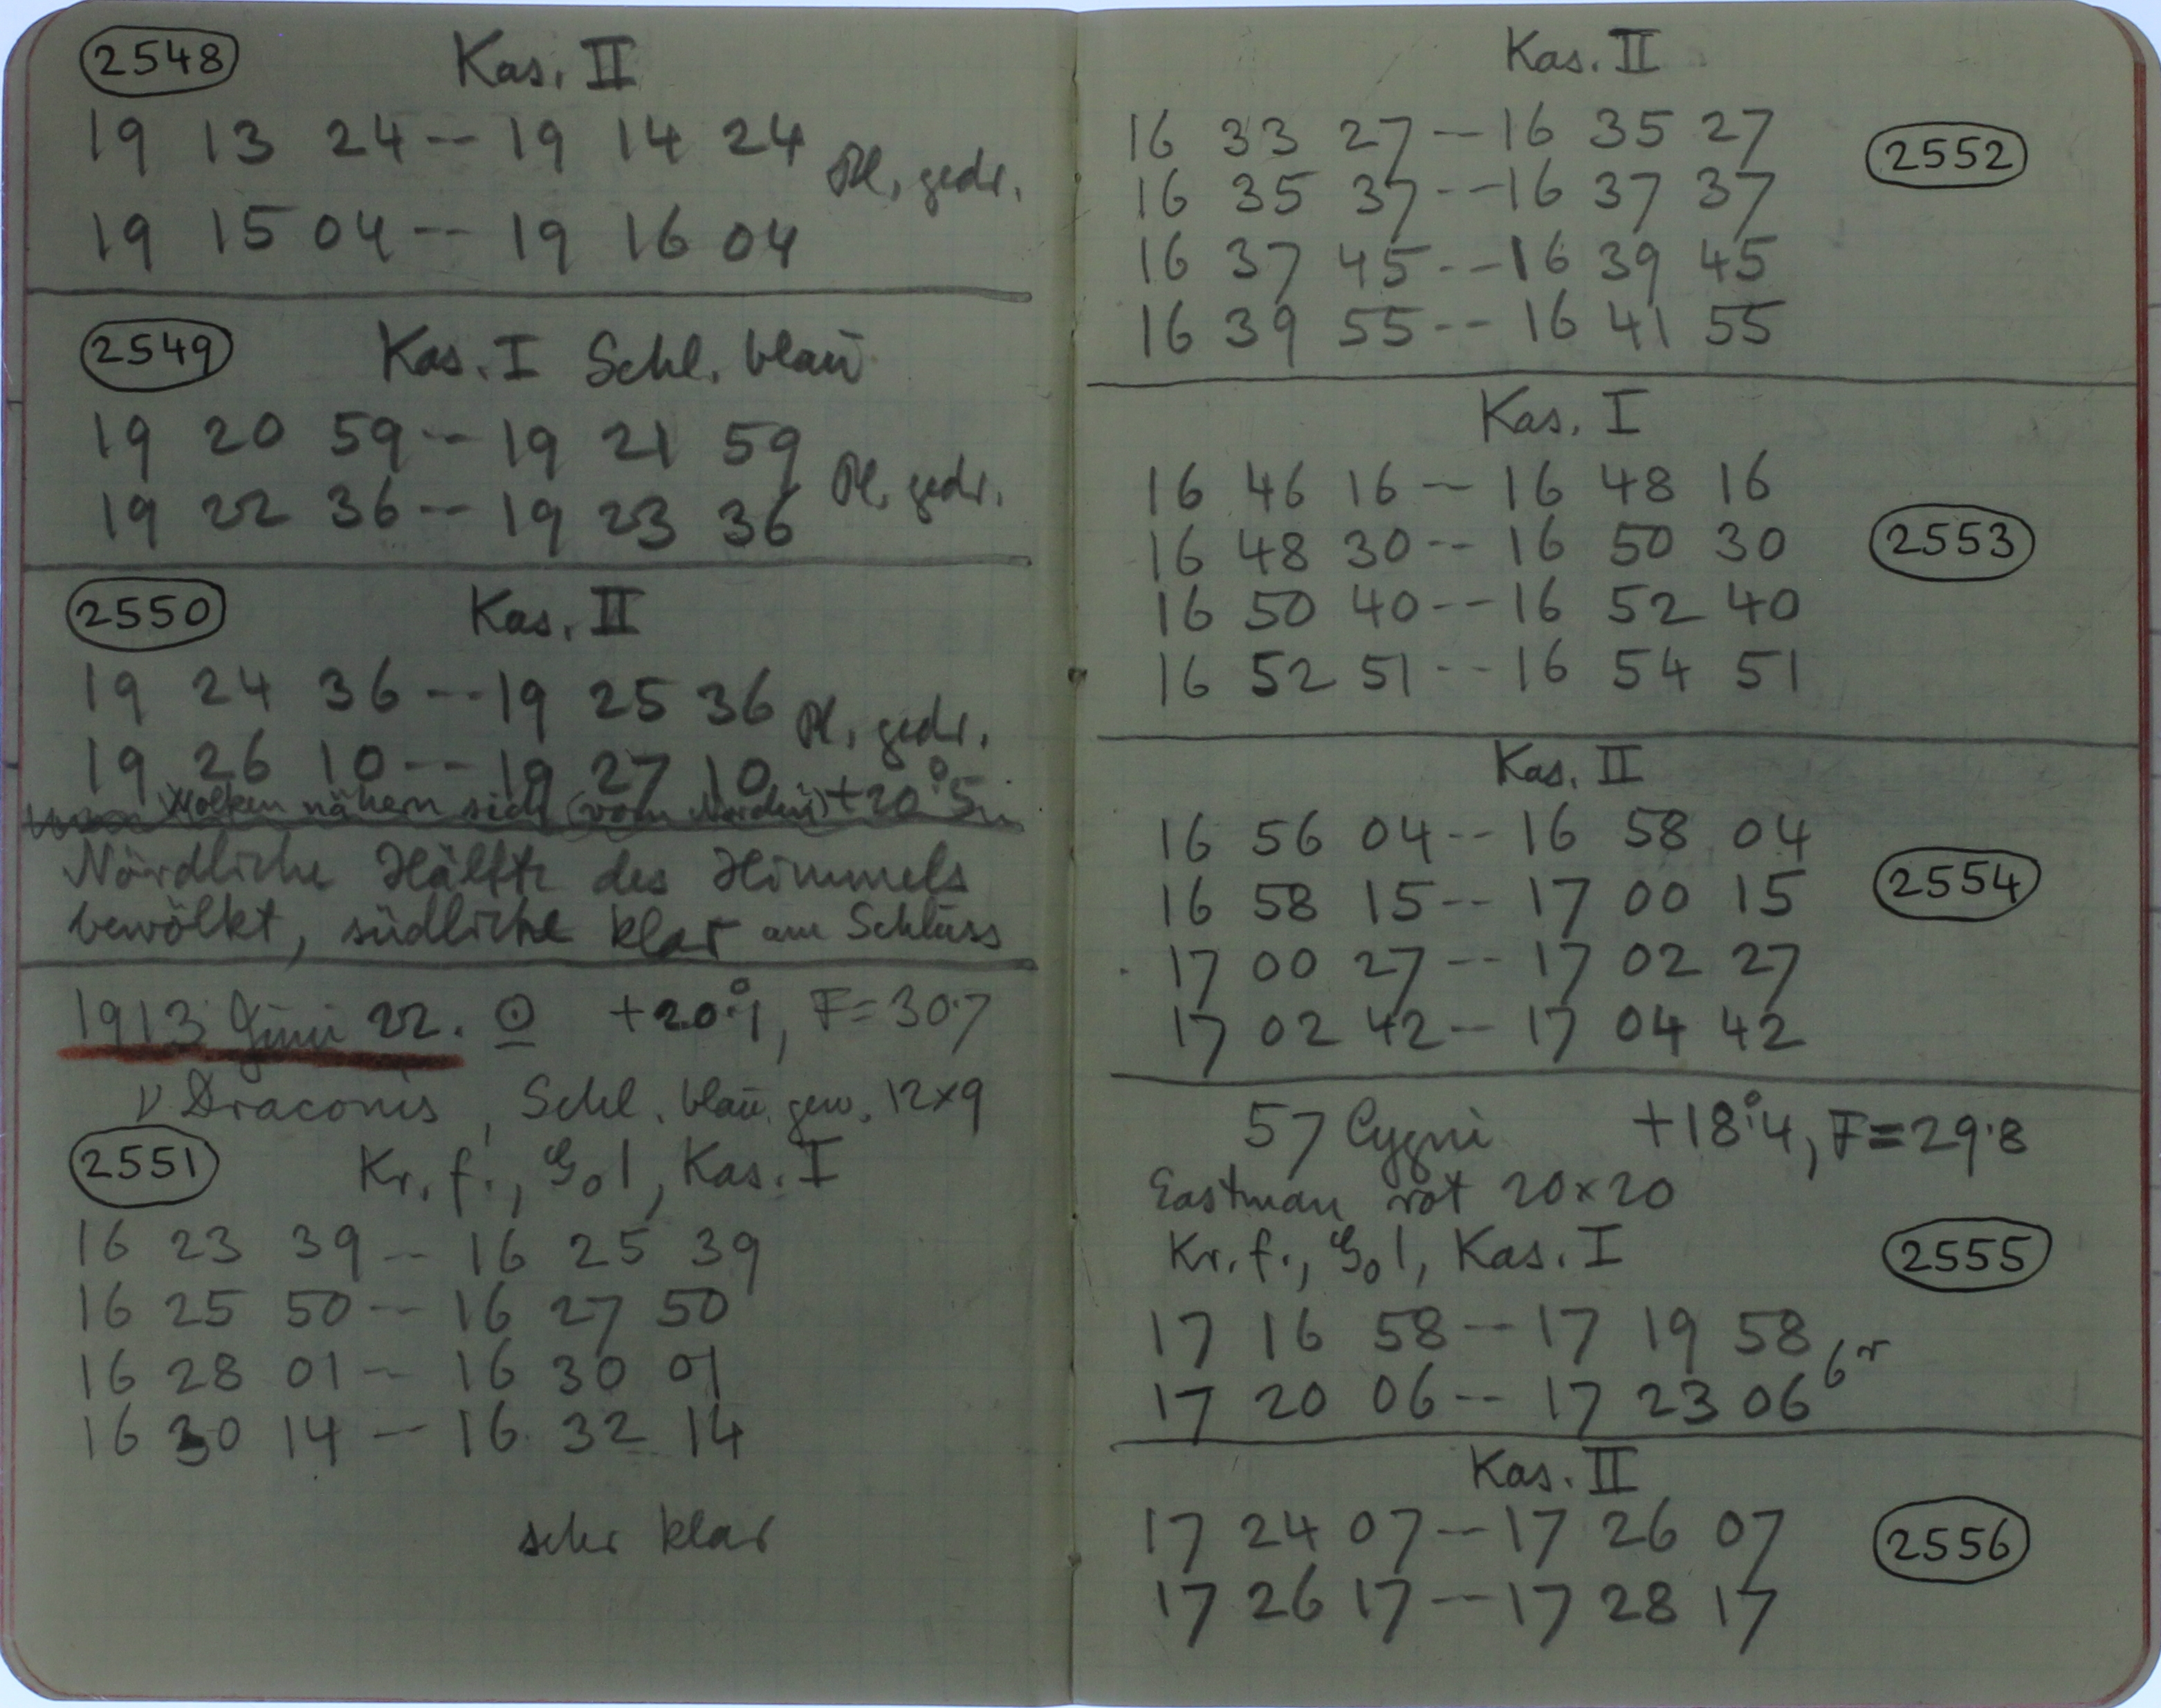 2548 Kas. II
19 13 24 -- 19 14 24 Pl. gedr.
19 15 04 -- 19 16 04
2549 Kas. I Schl. blau
19 20 59 -- 19 21 59 Pl. gedr.
19 22 36 -- 19 23 36
2550 Kas. II
19 24 36 -- 19 25 36 Pl. gedr.
19 26 10 -- 19 27 10
Wolken nähern sich (vom Norden) +20°5
Nördliche Hälfte des Himmels
bewölkt, südliche klar am Schluss
1913 Juni 22. ☉ +20°.1, F=30.7
ν Draconis, Schl. blau gew. 12×9
2551 Kr. f., 1, Kas. I
16 23 39 -- 16 25 39
16 25 50 -- 16 27 50
16 28 01 -- 16 30 01
16 30 14 -- 16 32 14
sehr klar
Kas. II
16 33 27 -- 16 35 27 2552
16 35 37 -- 16 37 37
16 37 45 -- 16 39 45
16 39 55 -- 16 41 55
Kas. I
16 46 16 -- 16 48 16
16 48 30 -- 16 50 30 2553
16 50 40 -- 16 52 40
16 52 51 -- 16 54 51
Kas. II
16 56 04 -- 16 58 04
16 58 15 -- 17 00 15 2554
17 00 27 -- 17 02 27
17 02 42 -- 17 04 42
57 Cygni +18°.4, F=29.8
Eastman rot 20×20
Kr. f., 1, Kas. I 2555
17 16 58 -- 17 19 58
17 20 06 -- 17 23 06
Kas. II
17 24 07 -- 17 26 07 2556
17 26 17 -- 17 28 17